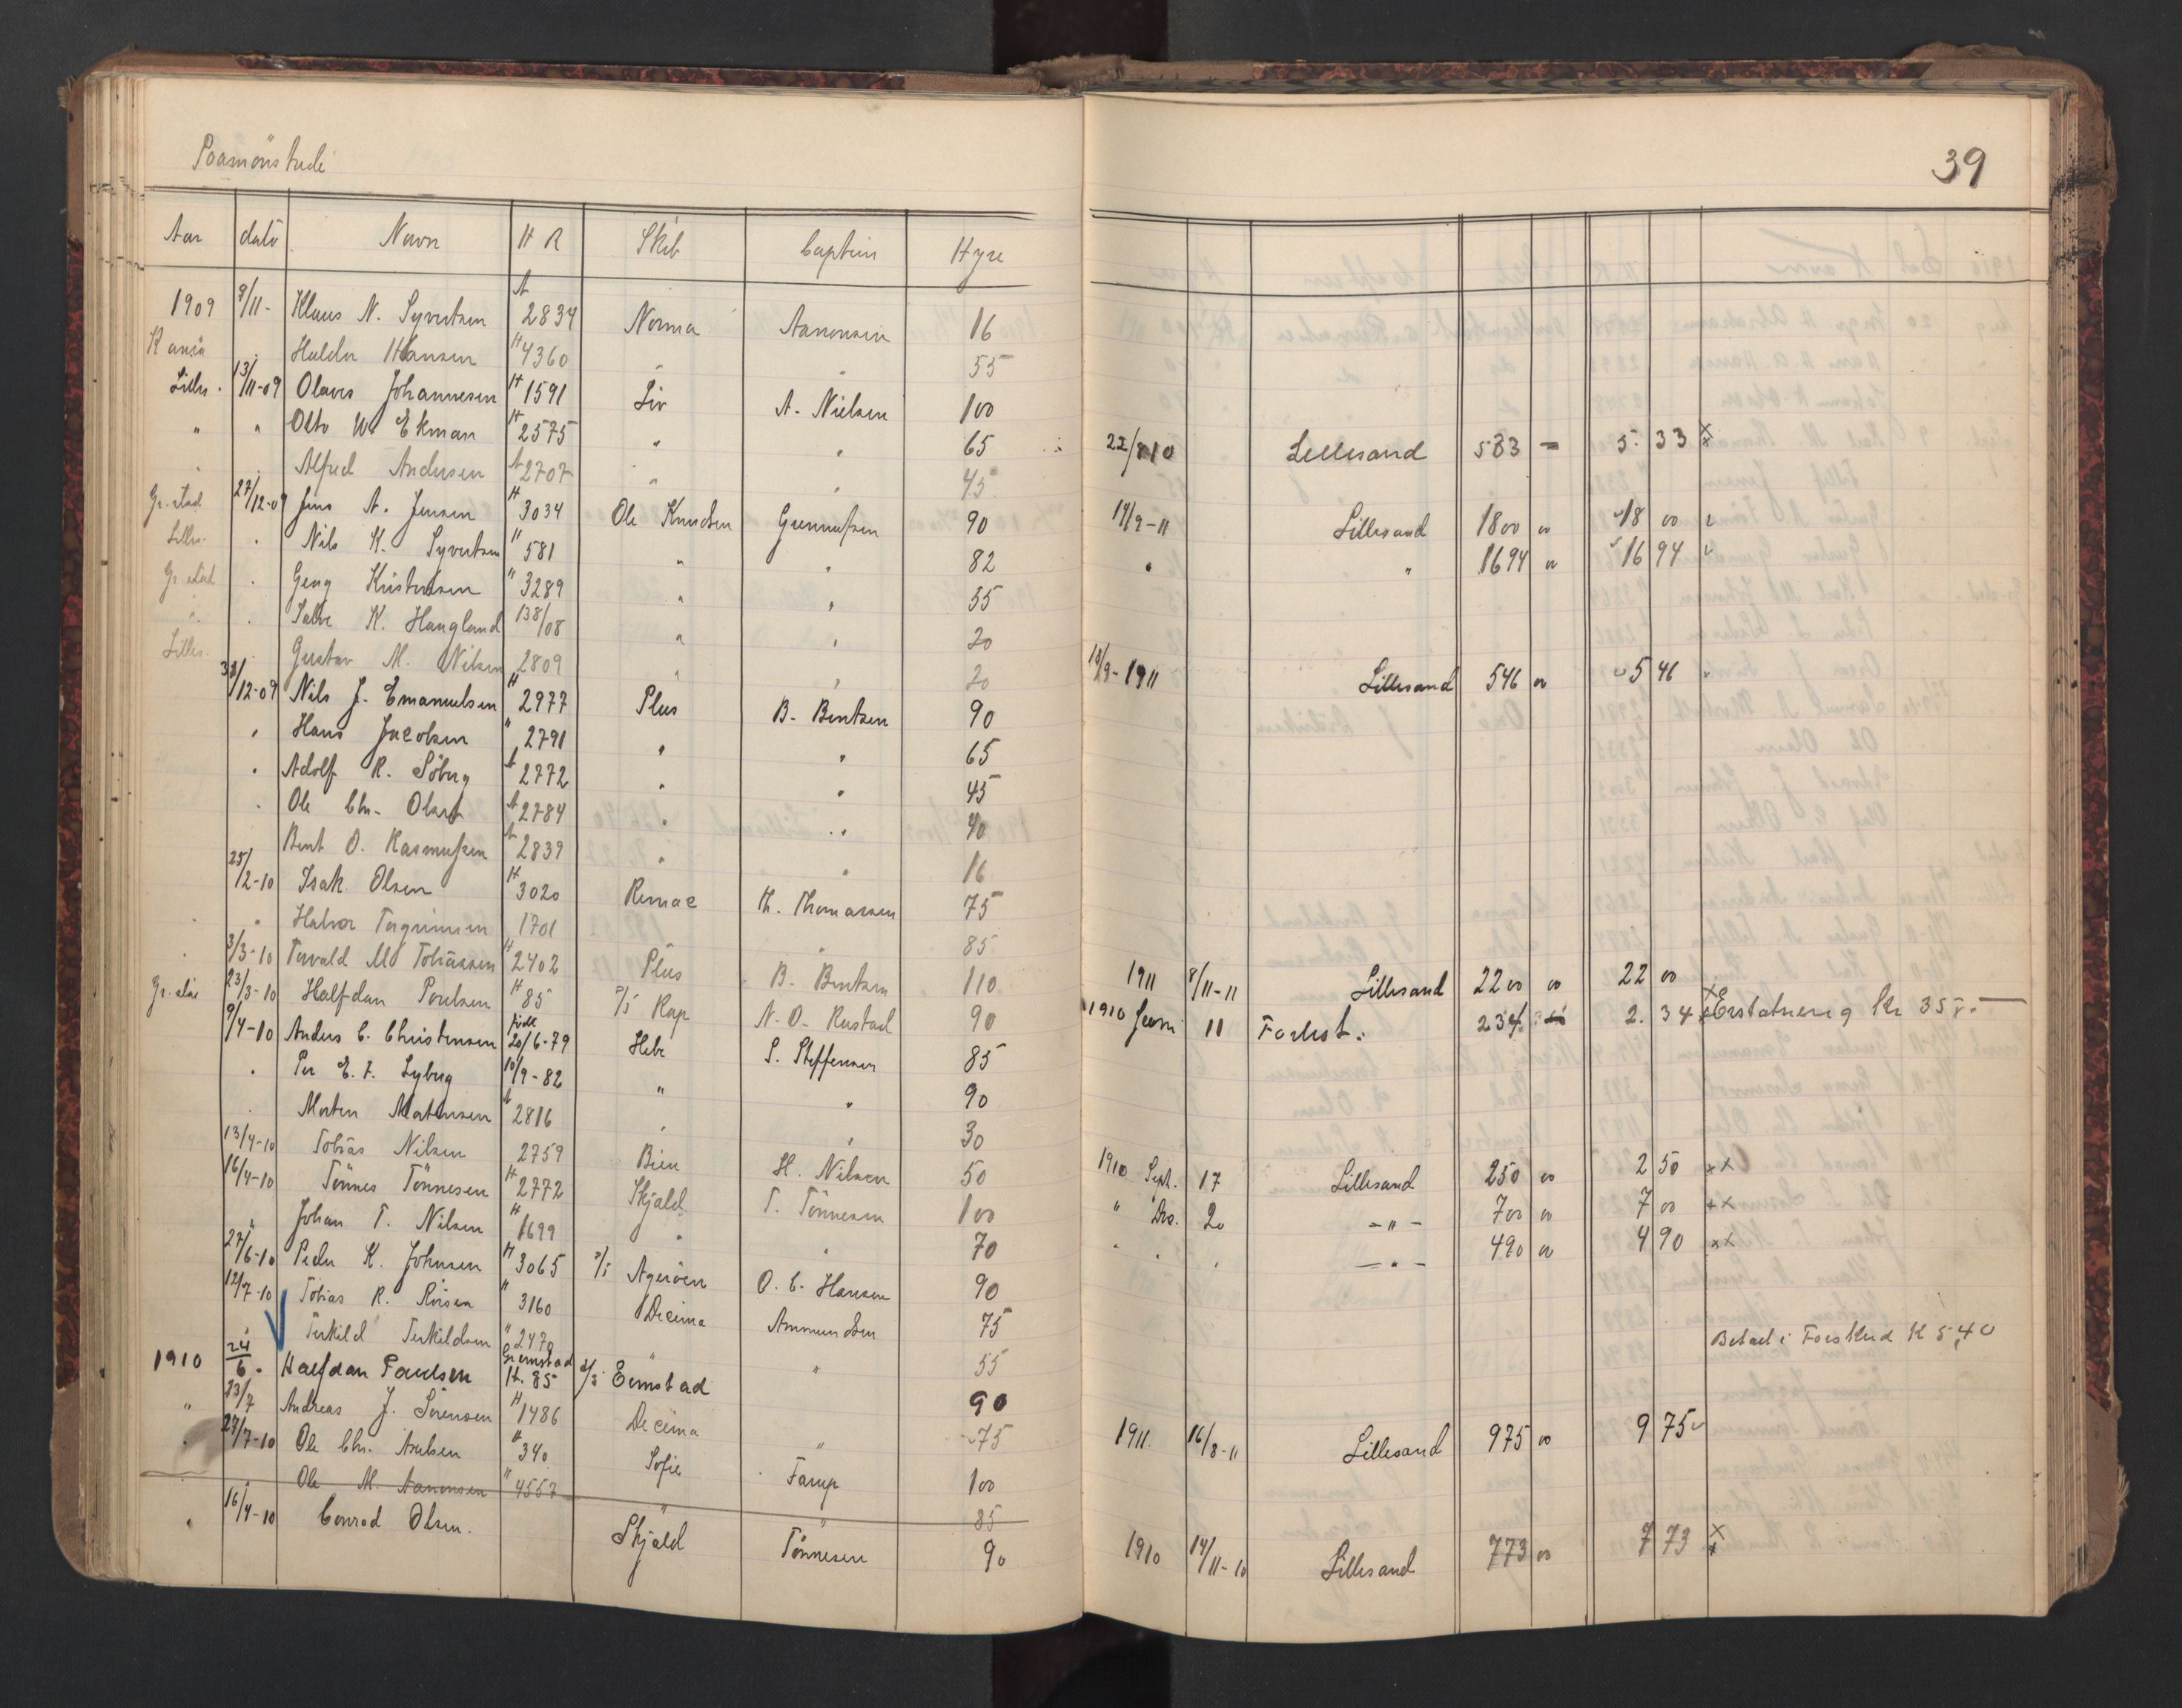 Paamönstrede
39
Aar datö Navn H R Skib Captein Hyre
1909 8/11- Klaus N. Syvertsen A 2834 Norma Aanonsen 16
Haldor Hansen H 4360 " " 55
Lilles. 13/11-09 Olaves Johannesen H 1591 Liv A. Nielsen 100
" " Otto W. Ekman H 2575 " " 65 22/8 10 Lillesand 533 = 5 33 x
Alfred Andersen A 2707 " " 45
Gr.stad 27/12-09 Jens A. Jensen H 3034 Ole Knudsen Gunnufsen 90 19/9-11 Lillesand 1800 00 18 00
Lilles. " Nils K. Syvertsen H 581 " " 82 " " 1694 00 16 94
Gr.stad " Georg Kristensen " 3289 " " 55
" " Salve K. Haugland 138/08 " " 20
Lilles. " Gustav M. Nilsen 2809 " " 20 18/9-1911 Lillesand 546 00 5 46
31/12-09 Nils J. Emanuelsen H 2977 Plus B. Bentsen 90
" Hans Jacobsen " 2791 " " 65
" Adolf R. Söberg A 2772 " " 45
" Ole Chr. Olsen A 2784 " " 40
Bent O. Rasmufsen A 2839 " " 16
25/2-10 Isak Olsen H 3020 Remac Th. Thomassen 75
" Halvor Tergrimsen 1701 " 85
3/3-10 Torvald M Tobiassen H 2402 Plus B. Bentsen 110 1911 8/11-11 Lillesand 2200 00 22 00
Gr.stad 23/3-10 Halfdan Poulsen H 85 S/S Rap N. O. Rustad 90 1910 Juni 11 Forhst. 234 2. 34 x Erstatnerig Kr 35
9/4-10 Anders C. Christensen født 20/6-79 Hebe S. Steffensen 85
" Per E. F. Lyberg 10/9-82 " " 90
Morten Mortensen A 2816 " " 30
13/4-10 Tobias Nilsen 2759 Bien H. Nilsen 50 1910 Sept. 17 Lillesand 250 00 2 50 xx
16/4-10 Tönnes Tönnesen H 2772 Skjald T. Tönnesen 100 " Dec. 20 -"- 700 00 7 00 xx
" Johan T. Nilsen H 1699 " " 70 " " " -"- 490 00 4 90 xx
27/6-10 Peder K. Johnsen H 3065 S/S Ageröen O. C. Hansen 90
12/7-10 Tobias R. Roisen " 3160 Decima Ammundsen 75
" Terkild Terkildsen " 2470 " " 55 Betalt i Forskud K 5,40
1910 24/6 Halfdan Paulsen Grimstad H. 85 S/S Ernstad 90
" 23/7 Andreas J. Sörensen H 1486 Decima " 75 1911. 16/8-11 Lillesand 975 00 9 75
" 27/7-10 Ole Chr. Axelsen H 340 Sofie Tarup 100
Ole M. Aanonsen " 4557 " " 85
" 16/4-10 Conrad Olsen. Skjald Tönnesen 90 1910 14/11-10 Lillesand 773 00 7 73 x